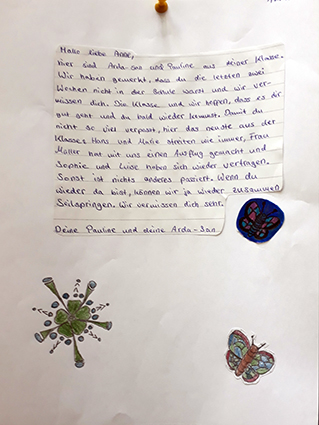 Hallo liebe Anne,
hier sind Arda-San und Pauline aus deiner Klasse.
Wir haben gemerkt, dass du die letzten zwei
Wochen nicht in der Schule warst und wir ver-
missen dich. Die Klasse und wir hoffen, dass es dir
gut geht und du bald wieder kommst. Damit du
nicht so viel verpasst, hier das neuste aus der
Klasse: Hans und Marie streiten wie immer, Frau
Müller hat mit uns einen Ausflug gemacht und
Sophie und Luise haben sich wieder vertragen.
Sonst ist nichts anderes passiert. Wenn du
wieder da bist, können wir ja wieder zusammen
Seilspringen. Wir vermissen dich sehr.
Deine Pauline und deine Arda-San